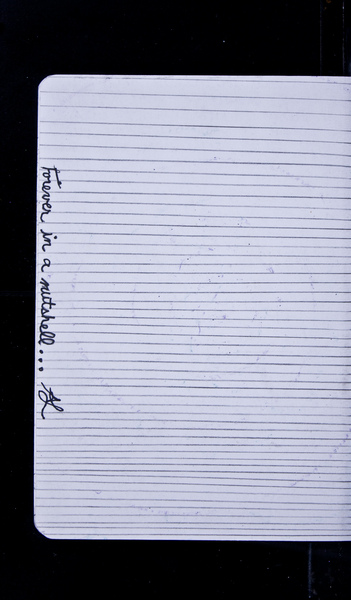 Forever in a nutshell...